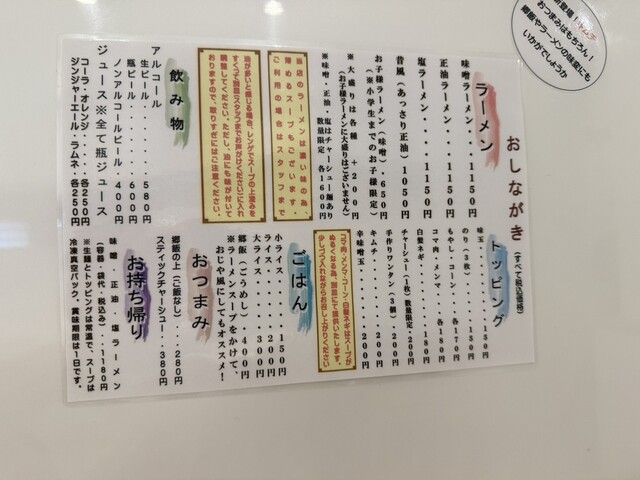 おしながき (すべて税込価格)
ラーメン
味噌ラーメン・・・・1150円
正油ラーメン・・・・1150円
塩ラーメン・・・・・1150円
昔風(あっさり正油)1050円
お子様ラーメン(味噌)・650円
(※小学生までのお子様限定)
※大盛りは各種+200円
(お子様ラーメンに大盛りはございません)
※味噌・正油・塩はチャーシュー麺あり
数量限定・各1600円
当店のラーメンは濃い味の為、
薄めるスープもございます。
ご利用の場合はスタッフまで
油が多いと感じる場合、レンゲでスープの上澄みを
すくって別皿(スタッフまでお声がけください)に入れ
調整してください。ただし、油にも味が付いて
おりますので、取りすぎにはご注意ください。
飲み物
アルコール
生ビール・・・・・580円
瓶ビール・・・・・600円
ノンアルコールビール・400円
ジュース※全て瓶ジュース
コーラ・オレンジ・・・各250円
ジンジャーエール・ラムネ・各250円
トッピング
味玉・・・・・・・150円
のり(3枚)・・・・150円
もやし・コーン・各170円
コマ肉・メンマ・各180円
白髪ネギ・・・・・180円
チャーシュー(1枚)数量限定・200円
手作りワンタン(3個)・200円
キムチ・・・・・・200円
辛味噌玉・・・・・200円
コマ肉・メンマ・コーン・白髪ネギはスープが
ぬるくなる為、別皿にて提供いたします。
少しづつ入れながらお召し上がりください
ごはん
小ライス・・・150円
ライス・・・・200円
大ライス・・・300円
郷飯(ごうめし)・400円
※ラーメンスープをかけて、
おじや風にしてもオススメ!
おつまみ
郷飯の上(ご飯なし)・・・280円
スティックチャーシュー・・380円
お持ち帰り
味噌・正油・塩ラーメン
(容器・袋代・税込み)・・1180円
※生麺とトッピングは常温で、スープは
冷凍真空パック、賞味期限は1日です。
新登場!キムチ
おつまみはもちろん!
郷飯やラーメンの味変にも
いかがでしょうか